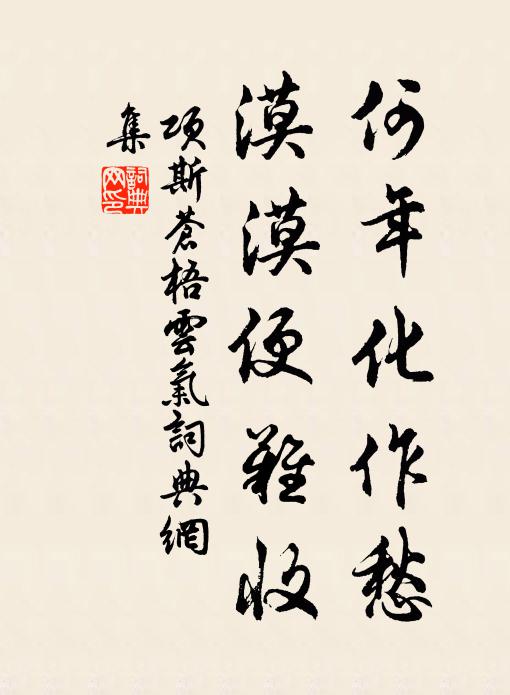 何年化作愁
漠漠便難收
項斯蒼梧雲氣詞典網
集
詞典
网印